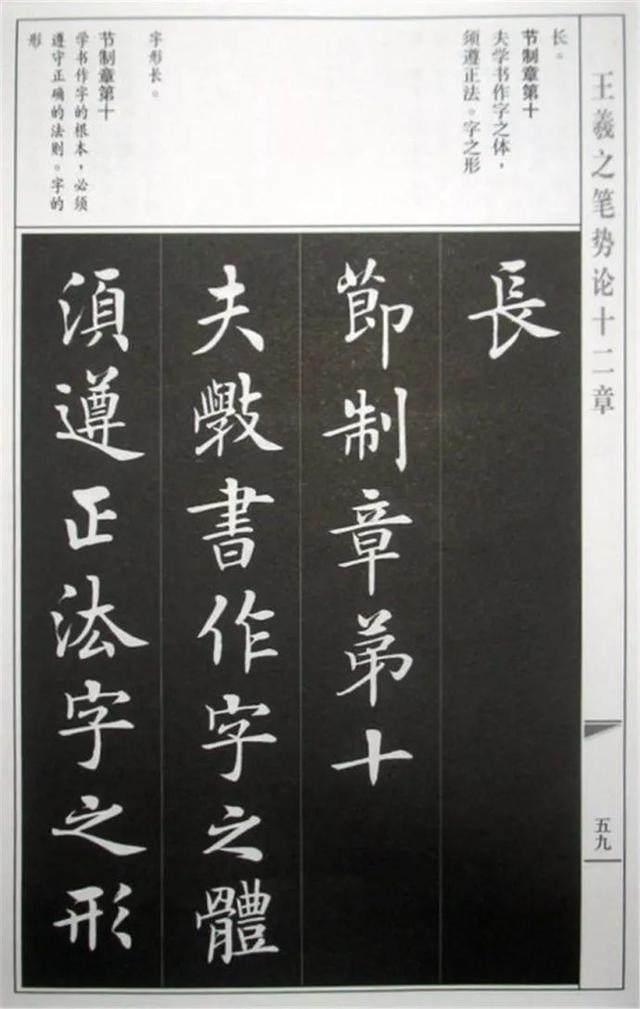 王羲之笔势论十二章
五九
长。
节制章第十
夫学书作字之体，
须遵正法。字之形
字形长。
节制章第十
学书作字的根本，必须
遵守正确的法则。字的
形
長
節制章弟十
夫斆書作字之體
湏遵正法字之形